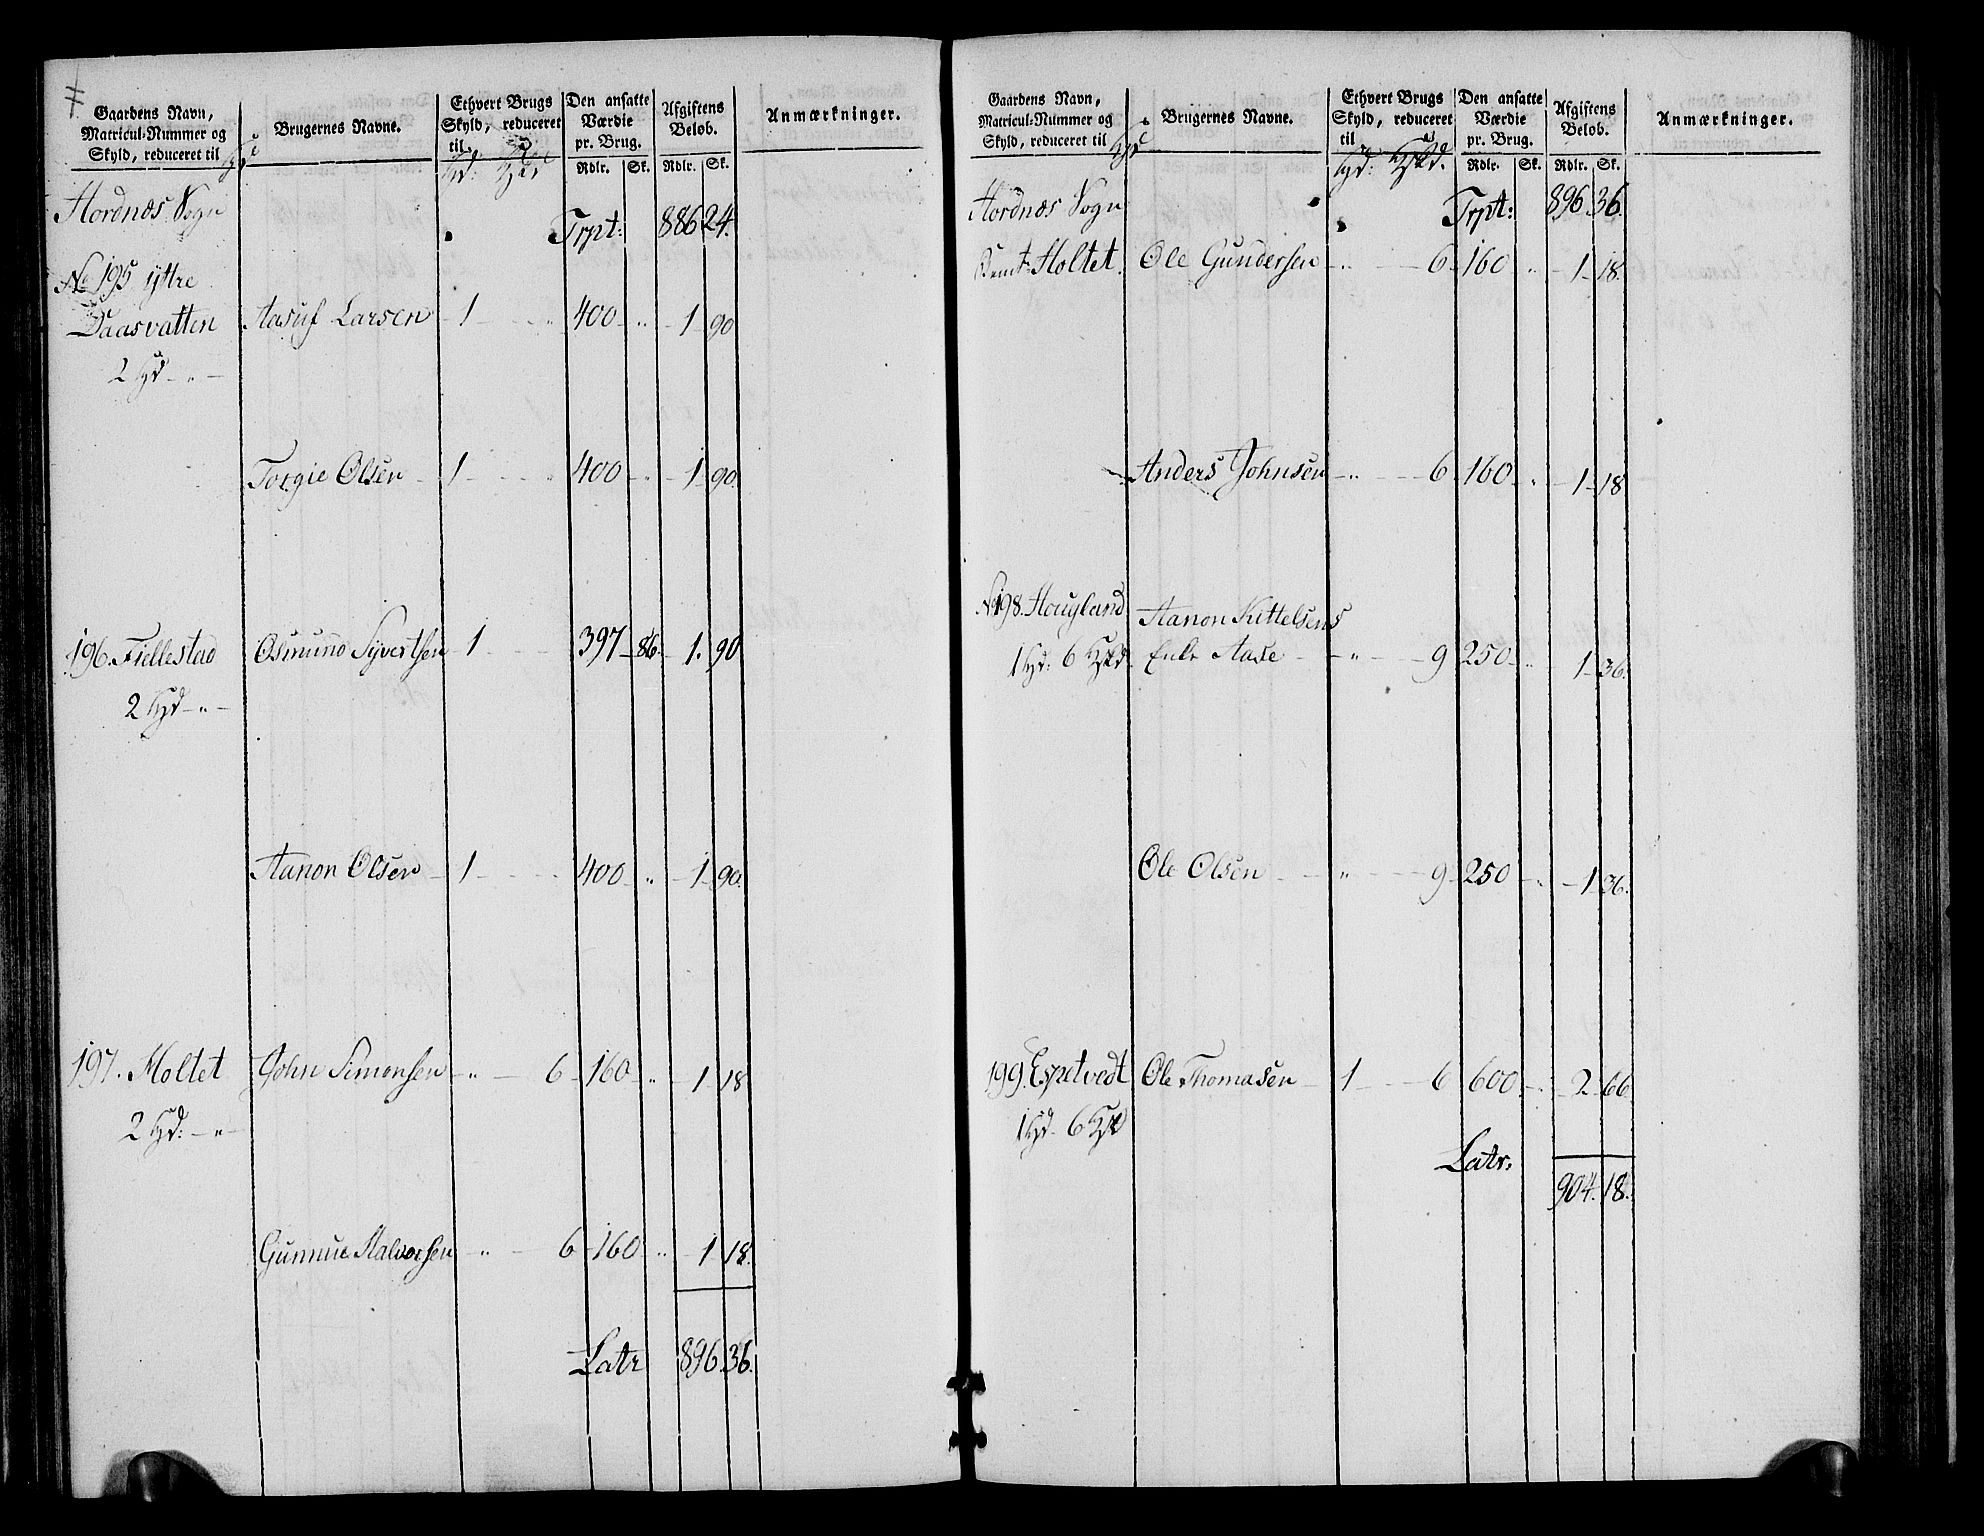 Gaardens Navn,
Matricul-Nummer og
Skyld, reduceret til
Brugernes Navne.
Ethvert Brugs
Skyld, reduceret
til
Den ansatte
Værdie
pr. Brug.
Rdlr. Sk.
Afgiftens
Beløb.
Rdlr. Sk.
Anmærkninger.
Hordnæs Sogn
Trpt: 886 24.
No 195 yttre
Daasvatten Aasuf Larsen 1 - " 400 - " - 1 90
2 Hd - " -
Torgie Olsen - 1 - " 400 - " - 1 - 90.
196. Fiellestad Osmund Syvertsen 1 - 397 - 86. - 1. 90
2 Hd - " -
Aanon Olsen - 1 - 400 - " - 1 - 90.
197. Holtet John Simonsen - " - 6 - 160 - " - 1 - 18
2 Hd: - " -
Gunnue Halvorsen - " - 6 - 160 - " - 1 18.
Latr 896. 36.
Gaardens Navn,
Matricul-Nummer og
Skyld, reduceret til
Brugernes Navne.
Ethvert Brugs
Skyld, reduceret
til
Den ansatte
Værdie
pr. Brug.
Rdlr. Sk.
Afgiftens
Beløb.
Rdlr. Sk.
Anmærkninger.
Hordnæs Sogn
Trpt: 896. 36.
Holtet. Ole Gundersen - " - 6 - 160 " - 1 - 18.
Anders Johnsen - " - 6 - 160 - " - 1 - 18
No 198. Hougland Aanon Kittelsens
1 Hd: 6 Hskd. Enke Aase - " - 9 250 - " 1 - 36.
Ole Olsen - " - 9 - 250 - " - 1 36.
199. Espetvedt Ole Thomasen - 1 - 6 600 - " - 2 - 66.
1 Hd. 6 Hskd
Latr.
904. 18.